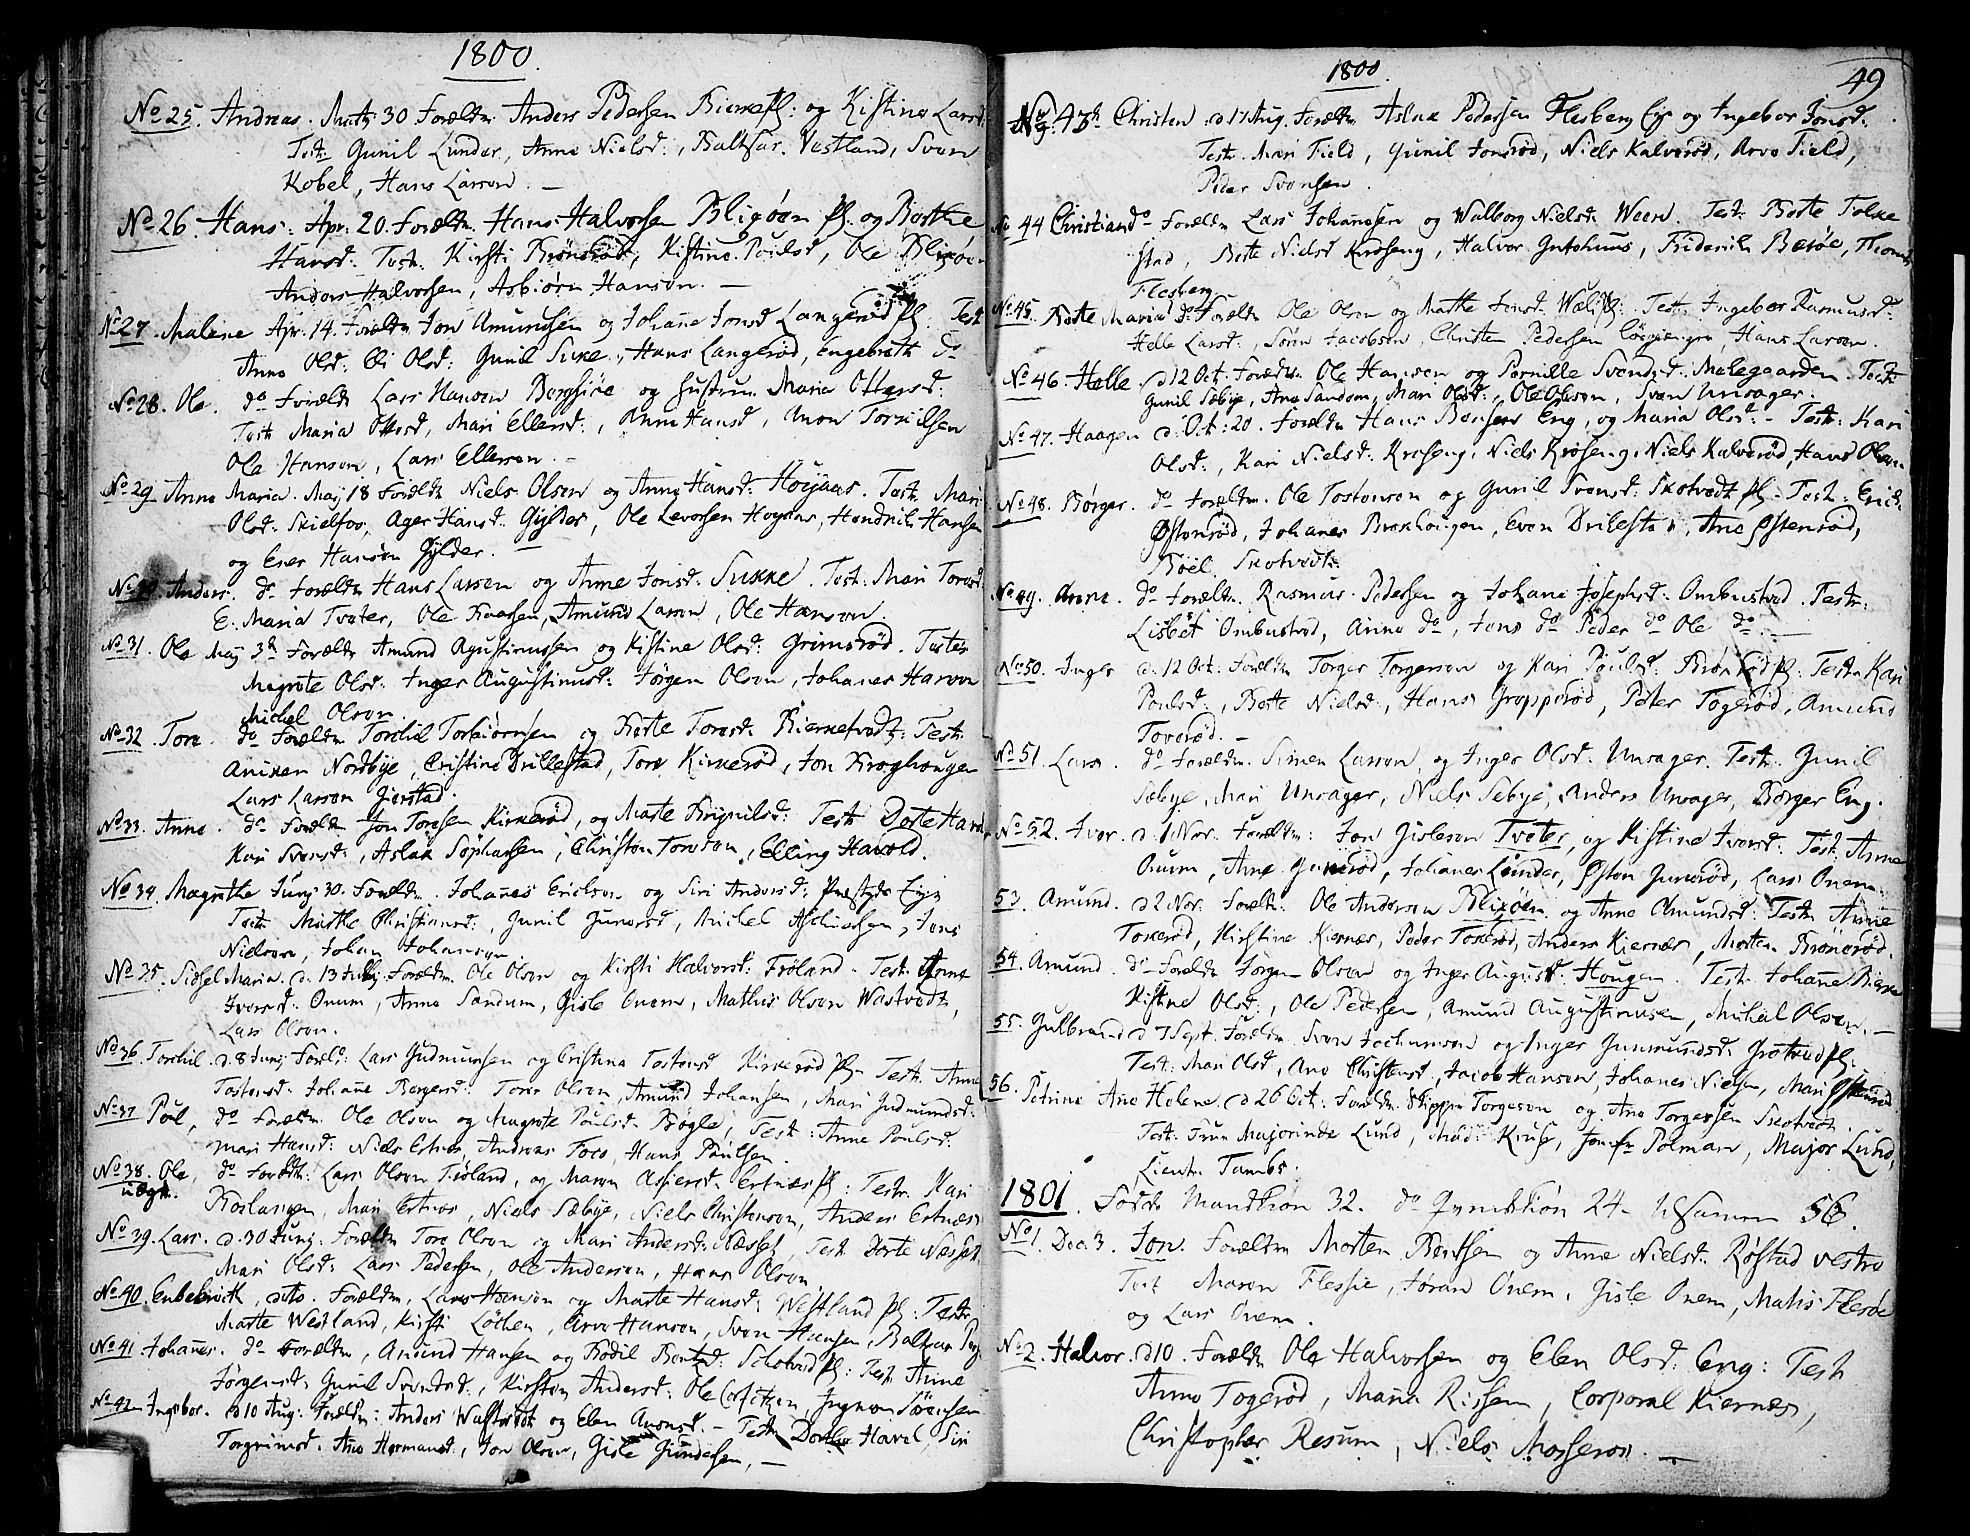 1800.
No 25. Andreas. Martz 30 Forældre Anders Pedersen Bierrepl: og Kistine Larsd:
Test: Gunil Lunder, Anne Nielsd:, Baltsar Vestland, Svern
Kobel, Hans Larson. —
No 26. Hans. Apr: 20. Foreldre. Hans Halvorsen Bligøen pl. og Borthe
Hansd. Test. Kirsti Brønerød, Kistine Poulsd, Ole Bligøen
Anders Halvorsen, Asbiørn Hanson. —
No 27. Malene Apr. 14. Foreldre Jon Amundsen og Johane Jonsd Langerød pl. Test
Anne Olsd: Eli Olsd: Gunil Suke, Hans Langerød, Engebreth do
No 28. Ole. do Foreldre Lars Hanson Bergsire og hustrue Maria Ottersd:
Test Maria Ottosd, Mari Ellersd:, Anne Hansd, Amon Torkildsen
Ole Hanson, Lars Ellerson. —
No 29 Anne Maria. May 18 Foreldre Niels Olson og Anne Hansd: Høijaas. Test. Mari
Olsd. Skielfoo, Ager Hansd. Gylder, Ole Levorsen Hoyaas, Hendrik Hansen
og Ener Hanson Gylder. —
No 30. Anders. do Foreldre Hans Larsen og Anne Jonsd. Sukke. Test: Mari Torersd:
E. Maria Tveter, Ole Knudsen, Amund Larson, Ole Hanson.
No 31. Ole May 31 Foreldre Amund Agustinussen og Kistine Olsd: Grimsrød. Testes
Magrete Olsd: Inger Augustinusd: Jørgen Olson, Johanes Harven
Michel Olson.
No 32. Tore. do Foreldre Torchil Torbiørnsen og Berte Toresd: Bierketvedt: Test:
Aniken Nordbye, Cristine Drillestad, Tore Kirkerød, Jon Kroghougen
Lars Larson Gierstad.
No 33. Anne. do Foreldre Jon Toresen Kirkerød, og Marte Brynildsd: Test Dorte Harde
Kari Svensd:, Aslak Sophassen, Christen Torston, Elling Havold.
No 34. Magrethe Junj 30. Foreldre. Johanes Ericksen og Siri Andersd: Prestegde Eyje
Test Marthe Christiansd:, Gunil Gunersd, Michel Aschildsen, Jens
Nielson, Johan Johanson
No 35. Sidsel Maria. d. 13 Julij. Foreldre Ole Olson og Kirsti Halvorsd: Frøland. Test. Anne
Iversd: Onum, Anne Sandum, Gisle Onem, Mathis Olson Wastvedt,
Lars Olson.
No 36. Torchil. d. 8 Junj Foreld: Lars Gudmunsen og Cristina Tostensd Kirkerød pl. Test. Anne
Tostensd. Johane Borgersd: Torer Olson, Amund Johansen, Mari Gudmundsd:
No 37 Poul, do Foreldre Ole Olson og Magrete Poulsd: Bøgle, Test: Anne Poulsd:
Mari Hansd: Niels Ertnes, Andreas Foss, Hans Poulsen.
No 38. Ole, do Foreldre. Lars Olson Frøland, og Maren Asgiersd: Ertnæs pl: Test. Kari
uægte. Røslangen, Mari Ertnes, Niels Sæbye, Niels Christenson, Anders Ertnæs
No 39. Lars. d. 30 Junj. Foreldre Tore Olson og Mari Andersd: Næsset, Test Dorte Næsset
Mari Olsd: Lars Pedersen, Ole Anderson, Hans Olson.
No 40. Enbebreth, dito. Foreldre, Lars Hanson og Marte Hansd: Westland pl: Test
Marte Westland, Kirsti Løken, Arve Hanson, Sven Hansen, Baltsar
No 41. Johanes. do Foreldre, Amund Hansen og Bodil Berthsd: Schotved pl: Test Anne
Jørgensd: Gunil Svendsd:, Kirsten Andersd: Ole Castersen, Ingman Sørensen
No 42. Ingebor. d 10 Aug: Foreldre: Anders Wastvedt og Elen Amensd. — Test Dorthe Havel, Siri
Torgrimsd. Ane Hermansd:, Jon Olson, Gisle Gundersen, —
1800.
49
No 43. Christen. d 17 Aug. Foreldre Aslak Pedersen Flesberg Eje og Ingebor Jonsd:
Test. Mari Field, Gunil Jonsrød, Niels Kalverød, Arve Field,
Peder Svensen.
No 44 Christian do Foreldre Lars Johansen og Walborg Nielsd: Weern. Test. Berte Tolke
stad, Berte Nielsd Kroseng, Halvor Gutehuus, Friderich Berøe, Thomes
Flesberg.
No 45. Berte Maria do Foreldre Ole Olson og Marthe Jonsd: Wælipl: Test. Ingebor Rasmusd:
Helle Larsd:, Søren Jacobson, Christen Pedersen Hans Larson.
No 46. Helle. d 12 Oct. Foreldre. Ole Hanson og Pernille Svendsd: Melegaarden. Test:
Gunil Sæbye, Ane Sandom, Mari Olsd:, Ole Olson, Sven Unsager.
No 47. Haagen d. Oct: 20. Foreldre Hans Bersen Eng, og Maria Olsd: — Test: Kari
Olsd:, Kari Nielsd. Kroseng, Niels Krøseng, Niels Kalverød, Hans Olson
No 48. Børger. do Foreldre. Ole Tostenson og Gunil Svensd: Skotvedt pl. Test: Erich
Østenrød, Johanes Brekhougen, Even Drilestad, Ane Østenrød,
Bøel Skotvedt.
No 49. Anne. do Foreldre. Rasmus Pedersen og Johane Josephsd. Ombustved. Test:
Lisbet Ombustved, Anne do, Jens do Peder do Ole do. —
No 50. Inger d. 12 Oct. Foreldre Torger Torgerson og Kari Poulsd: Brønrød pl: Test Kari
Poulsd:, Berte Nielsd:, Hans Gropperød, Peter Togerød, Amund
Toverød. —
No 51. Lars. do Foreldre. Simen Larson, og Inger Olsd. Unsager. Test. Gunil
Sæbye, Mari Unsager, Niels Sebye, Anders Unsager, Børger Eng.
No 52. Iver. d. 1 Nov. Foreldre: Jon Gisleson Tveter, og Kistine Iversd: Test. Anne
Onum, Ane Gunerød, Johanes Lunder, Østen Gunerød, Lars Onem.
53. Amund. d 2 Nov. Foreldre. Ole Anderson Bligøen og Anne Amundsd: Test. Anne
Tokerød, Kirstine Kiernæs, Peder Tokerød, Anders Kiernæs, Morten Brønerød.
54. Amund. do Foreldre Jørgen Olson og Inger Augustd: Hougen. Test. Johane Bierke
Kistine Olsd:, Ole Pedersen, Amund Augustinusen, Michel Olson. —
55. Gulbrand d 7 Sept. Foreldre Sven Jochumsen og Inger Gunmundsd: Grøtved pl.
Test: Mari Olsd, Ane Christensd, Jacob Hanson, Johanes Nielsen, Mari Østenrød
56. Petrine Ane Helene. d 26 Oct: Foreldre Skipper Torgeson og Ane Torgersen Skotvedt.
Test: Frue Majorinde Lund, Mad: Kruse, Jomfr Polman, Major Lund,
Lieutn. Tambs.
1801. Fødte Mandkiøn 32. do Qvindekiøn 24 — tilsamen 56.
No 1. Dec. 3. Jon. Foreldre Morten Berthsen og Anne Nielsd. Røstad vestre
Test Maren Flessie, Joran Onem, Gisle Onem, Mathis Flesøe
og Lars Onem.
No 2. Halvor. d 10. Foreldre Ole Halvorsen og Elen Olsd: Eng: Test
Anne Togerød, Maria Rissem, Corporal Kiernæs,
Christopher Resum, Niels Mosserøs. —